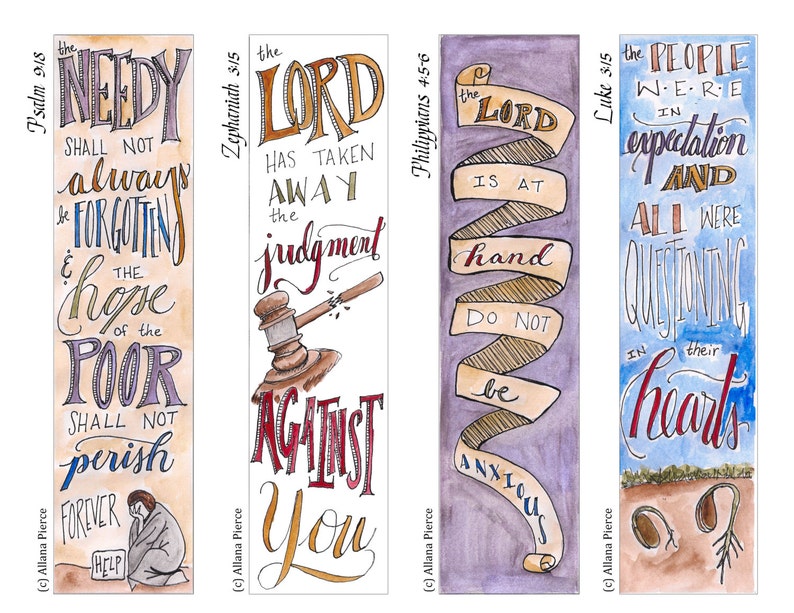 Psalm 9:18
the
NEEDY
SHALL NOT
always
be FORGOTTEN
& THE
hope
of the
POOR
SHALL NOT
perish
FOREVER
HELP
(c) Allana Pierce
Zephaniah 3:15
the
LORD
HAS TAKEN
AWAY
the
judgment
AGAINST
You
(c) Allana Pierce
Philippians 4:5-6
the LORD
IS AT
hand
DO NOT
be
ANXIOUS
(c) Allana Pierce
Luke 3:15
the PEOPLE
W·E·R·E
IN
expectation
AND
ALL WERE
QUESTIONING
IN their
hearts
(c) Allana Pierce